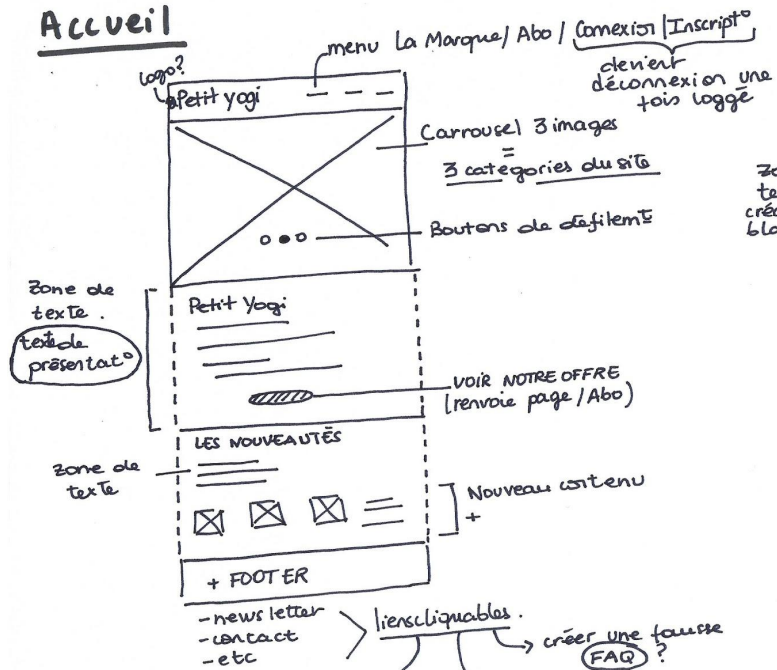 Accueil
menu La Marque / Abo / Connexion | Inscript°
devient
déconnexion une
fois loggé
logo?
Petit yogi
Carrousel 3 images
=
3 catégories du site
Boutons de défilemt
Zone de
texte.
texte de
présentat°
Petit Yogi
VOIR NOTRE OFFRE
(renvoie page / Abo)
LES NOUVEAUTÉS
Zone de
texte
Nouveau contenu
+
+ FOOTER
- newsletter
- contact
- etc
liens cliquables.
créer une fausse
FAQ ?